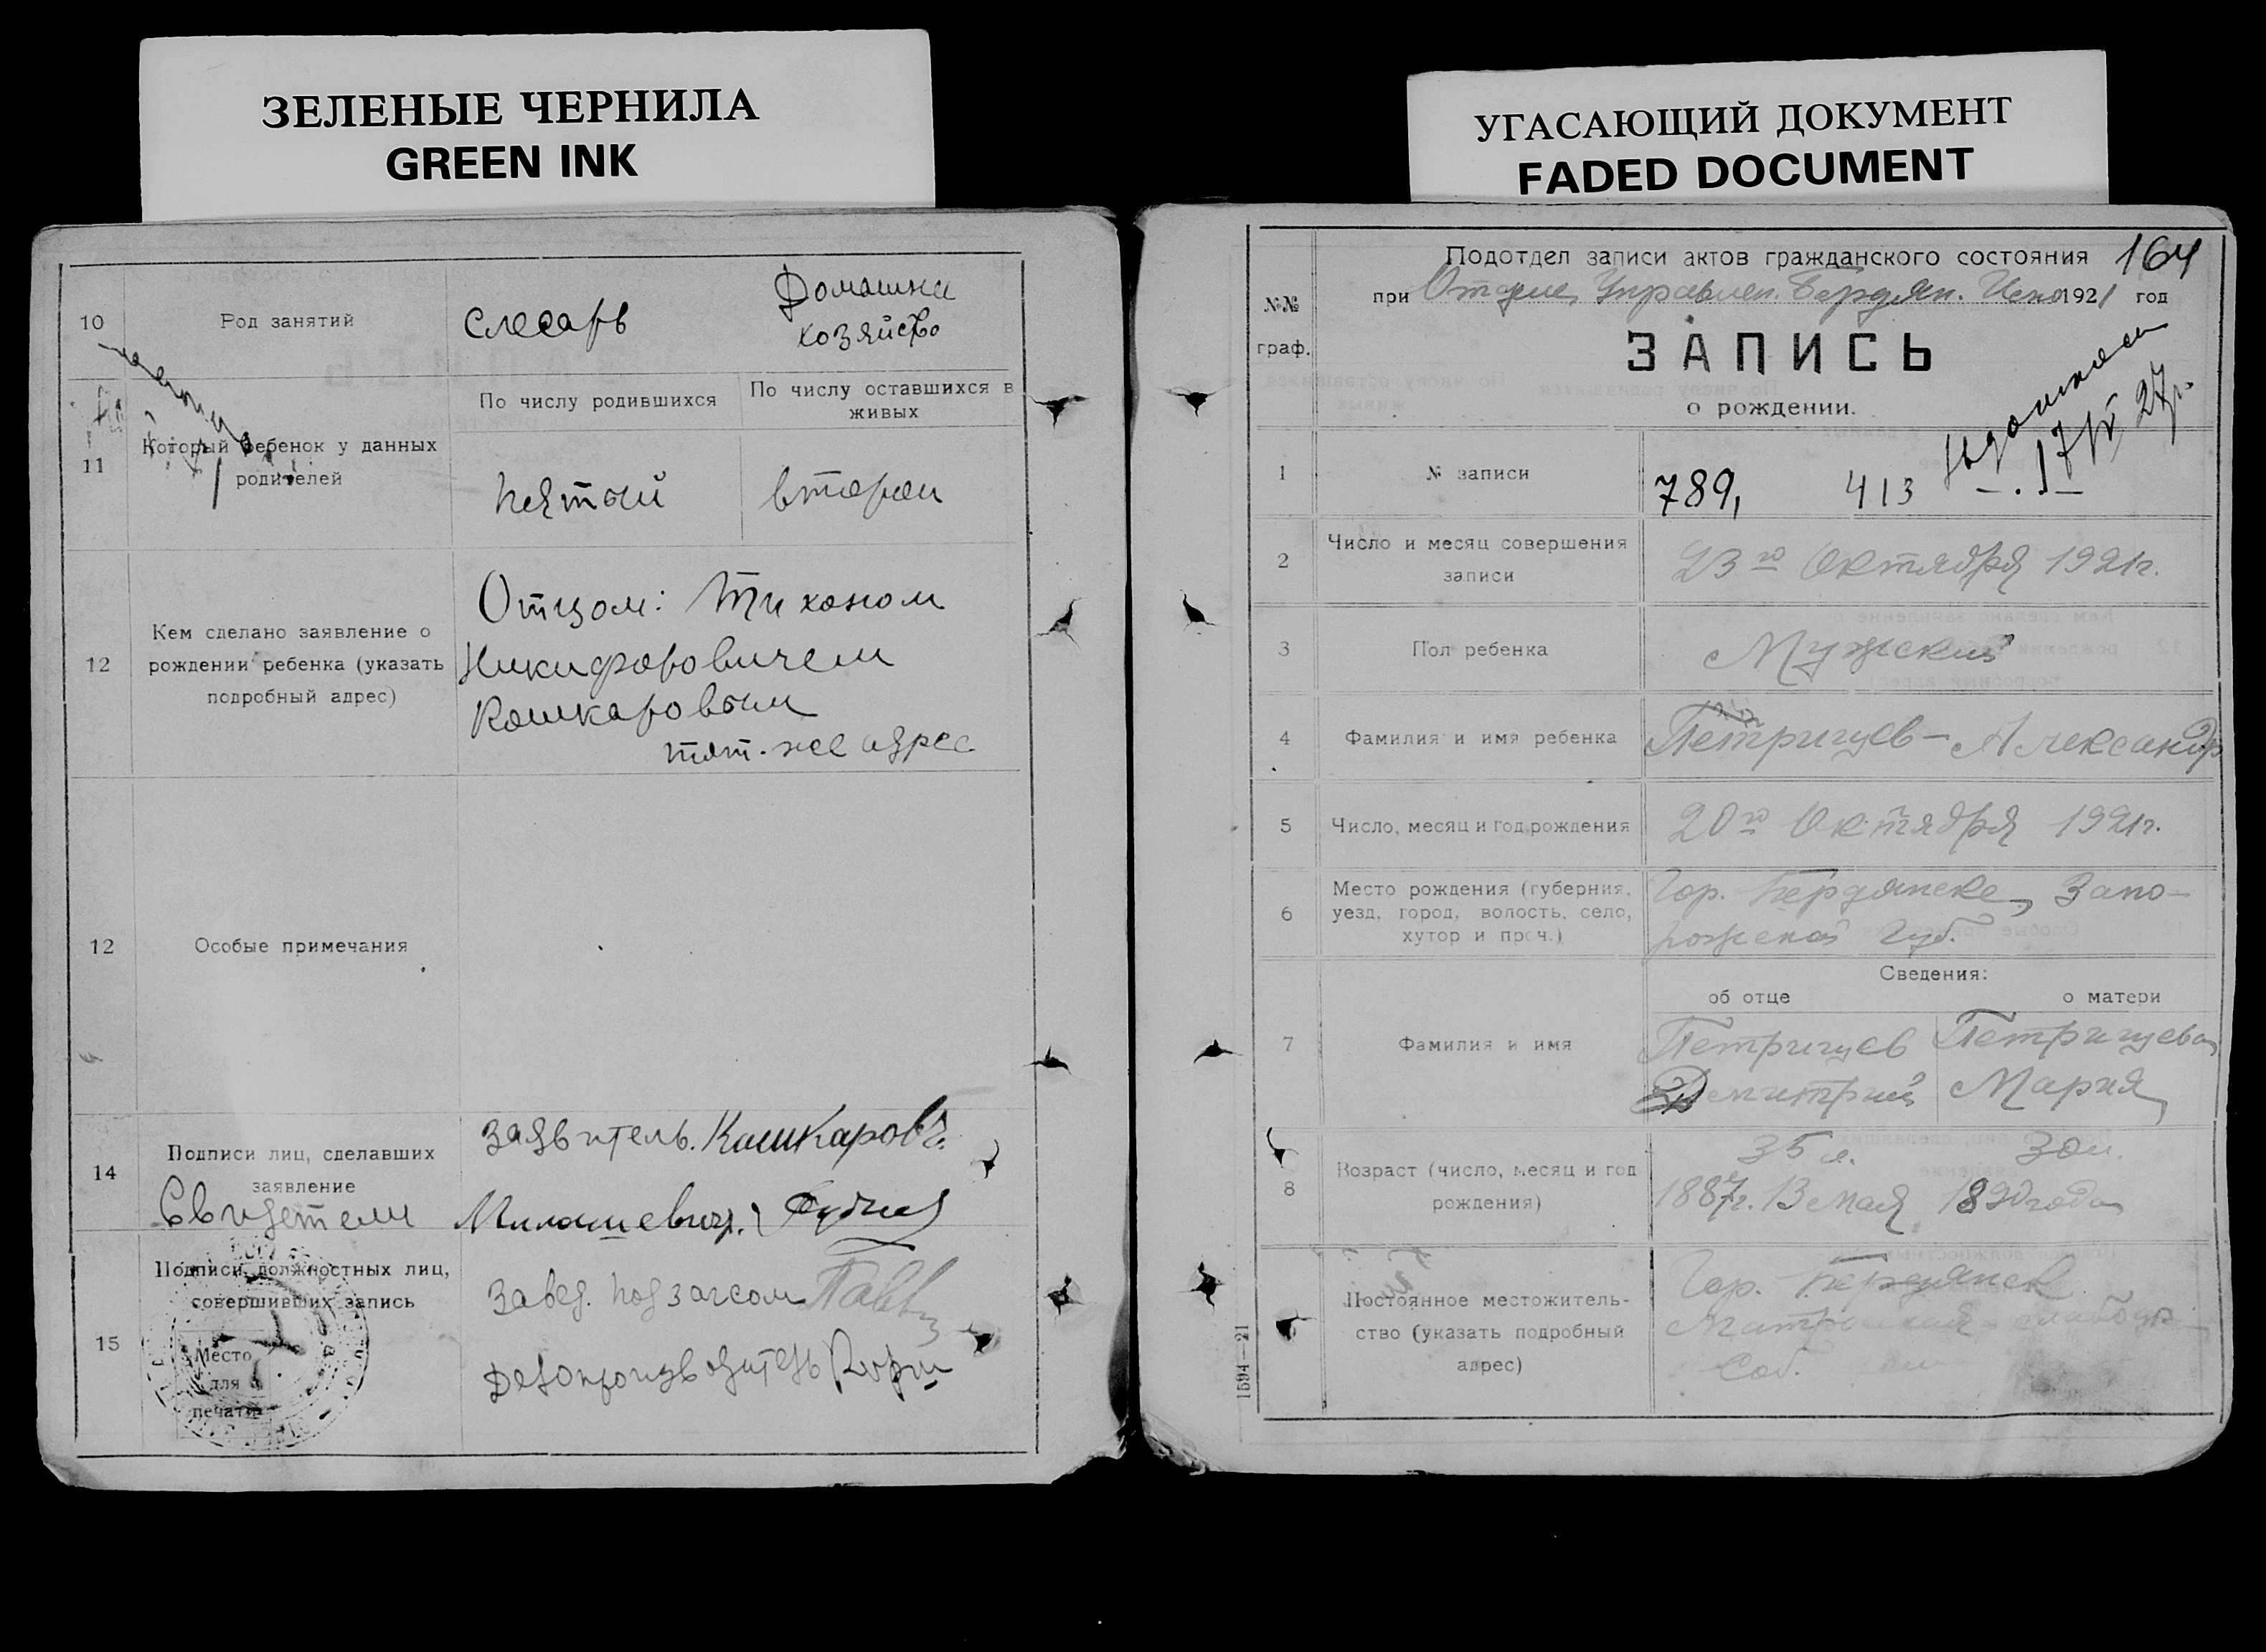 ЗЕЛЕНЫЕ ЧЕРНИЛА
GREEN INK
10
Род занятий
слесарь
Домашнее
хозяйство
11
Который ребенок у данных
родителей
По числу родившихся
По числу оставшихся в
живых
пятый
второй
12
Кем сделано заявление о
рождении ребенка (указать
подробный адрес)
Отцом: Тихоном
Никифоровичем
Кашкаровым
тот-же адрес
12
Особые примечания
14
Подписи лиц, сделавших
заявление
Свидетели
Заявитель. Кашкаровъ
Милашевич
15
Подписи должностных лиц,
совершивших запись
Место
для
печати
Завед. подзагсом
Делопроизводитель
УГАСАЮЩИЙ ДОКУМЕНТ
FADED DOCUMENT
№№
граф.
Подотдел записи актов гражданского состояния
164
при Отделе Управлен. Бердян. Испо 1921 год
ЗАПИСЬ
о рождении.
17/IV 27г.
1
№ записи
789,
413
2
Число и месяц совершения
записи
23го Октября 1921г.
3
Пол ребенка
Мужской
4
Фамилия и имя ребенка
Петрищев - Александр
5
Число, месяц и год рождения
20го Октября 1921г.
6
Место рождения (губерния,
уезд, город, волость, село,
хутор и проч.)
Гор. Бердянске, Запо-
рожской Губ.
Сведения:
об отце
о матери
7
Фамилия и имя
Петрищев
Димитрий
Петрищева
Мария
8
Возраст (число, месяц и год
рождения)
35 л.
1887г. 13 мая
30 л.
1890 года
Постоянное местожитель-
ство (указать подробный
адрес)
Гор. Бердянск
слабодка
Соб.
1594—21